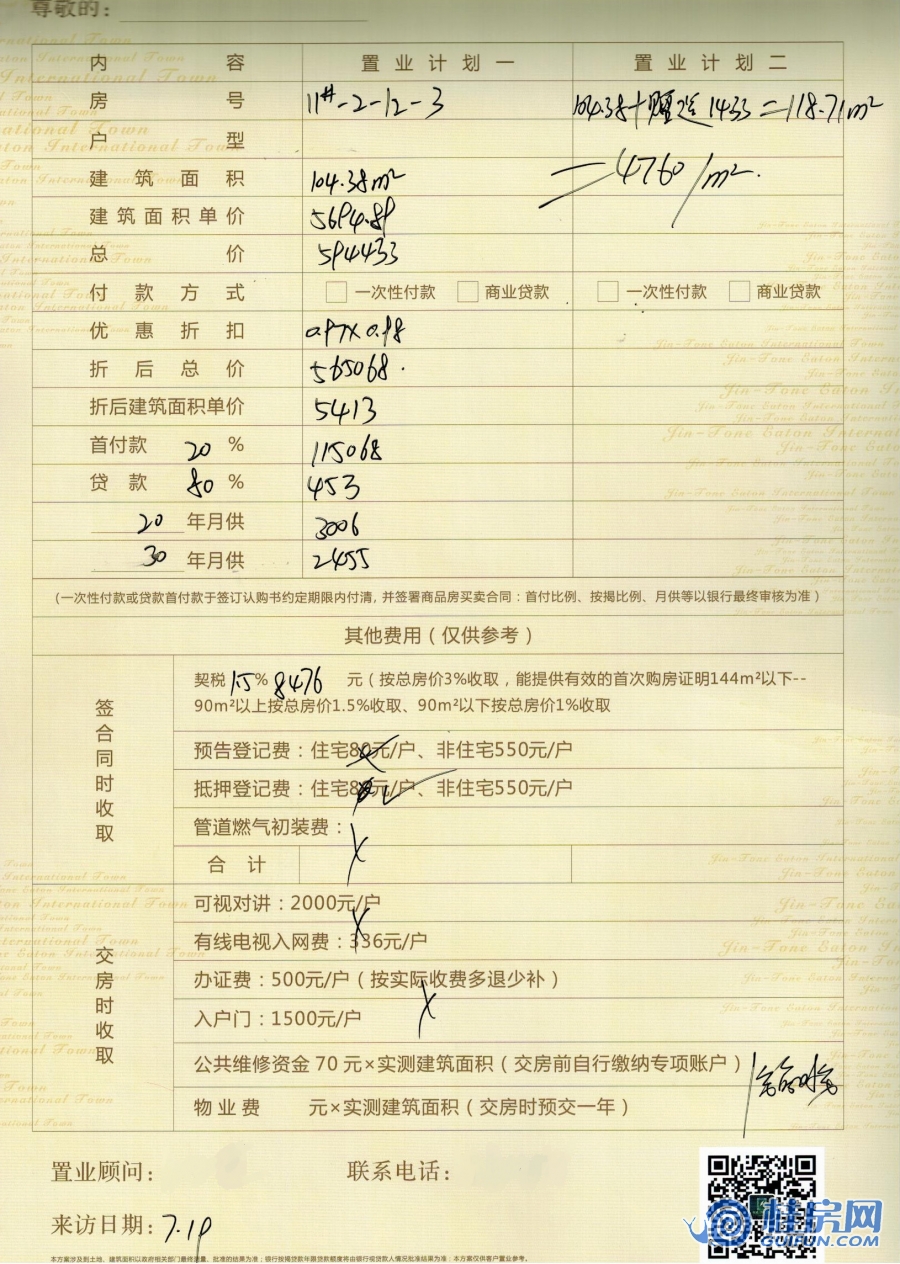 尊敬的：
内容 置业计划一 置业计划二
房号 11#-2-12-3 104.38+赠送14.33=118.71m²
户型
=4760/m².
建筑面积 104.38m²
建筑面积单价 5694.89
总价 594433
付款方式 □一次性付款 □商业贷款 □一次性付款 □商业贷款
优惠折扣 0.97×0.98
折后总价 565068.
折后建筑面积单价 5413
首付款 20% 115068
贷款 80% 453
20年月供 3006
30年月供 2455
（一次性付款或贷款首付款于签订认购书约定期限内付清，并签署商品房买卖合同：首付比例、按揭比例、月供等以银行最终审核为准）
其他费用（仅供参考）
签合同时收取
契税1.5% 8476 元（按总房价3%收取，能提供有效的首次购房证明144m²以下--
90m²以上按总房价1.5%收取、90m²以下按总房价1%收取
预告登记费：住宅80元/户、非住宅550元/户
抵押登记费：住宅80元/户、非住宅550元/户
管道燃气初装费：
合计
交房时收取
可视对讲：2000元/户
有线电视入网费：336元/户
办证费：500元/户（按实际收费多退少补）
入户门：1500元/户
公共维修资金70元×实测建筑面积（交房前自行缴纳专项账户）
物业费 元×实测建筑面积（交房时预交一年）
置业顾问： 联系电话：
来访日期：7.19
本方案涉及到土地、建筑面积以政府相关部门最终测量、批准的结果为准；银行按揭贷款年限贷款额度将由银行视贷款人情况批准结果为准；本方案仅供客户置业参考。
桂房网
GUIFUN.COM